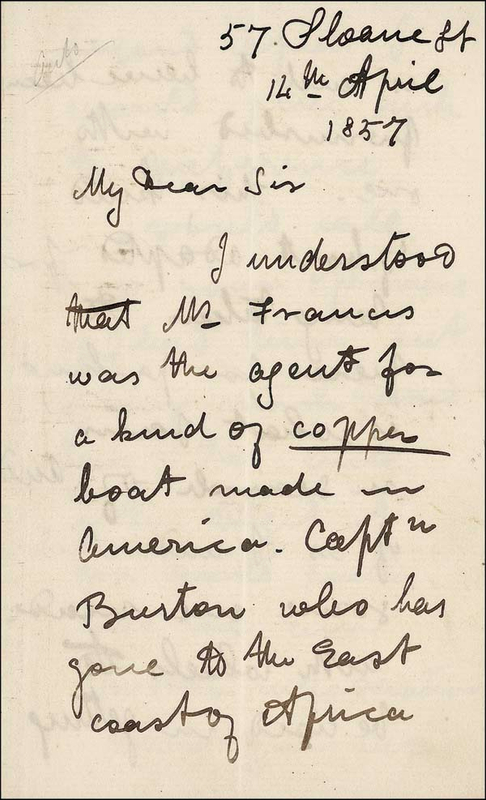 57. Sloane St
14th April
1857
My Dear Sir
I understood
that Mr Francis
was the agent for
a kind of copper
boat made in
America. Captn
Burton who has
gone to the East
coast of Africa